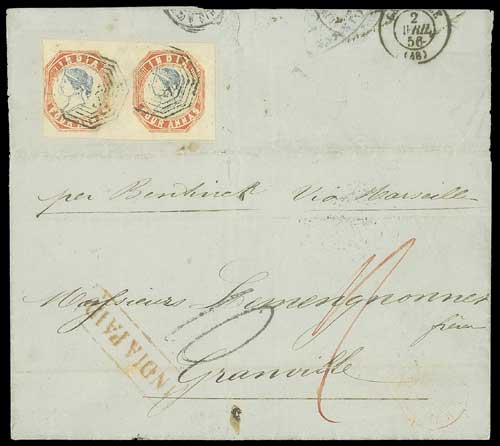 INDIA INDIA
FOUR ANNAS
2
AVRIL
56
(48)
per Bentinck Via Marseille
Messieurs
frères
INDIA PAID
Granville